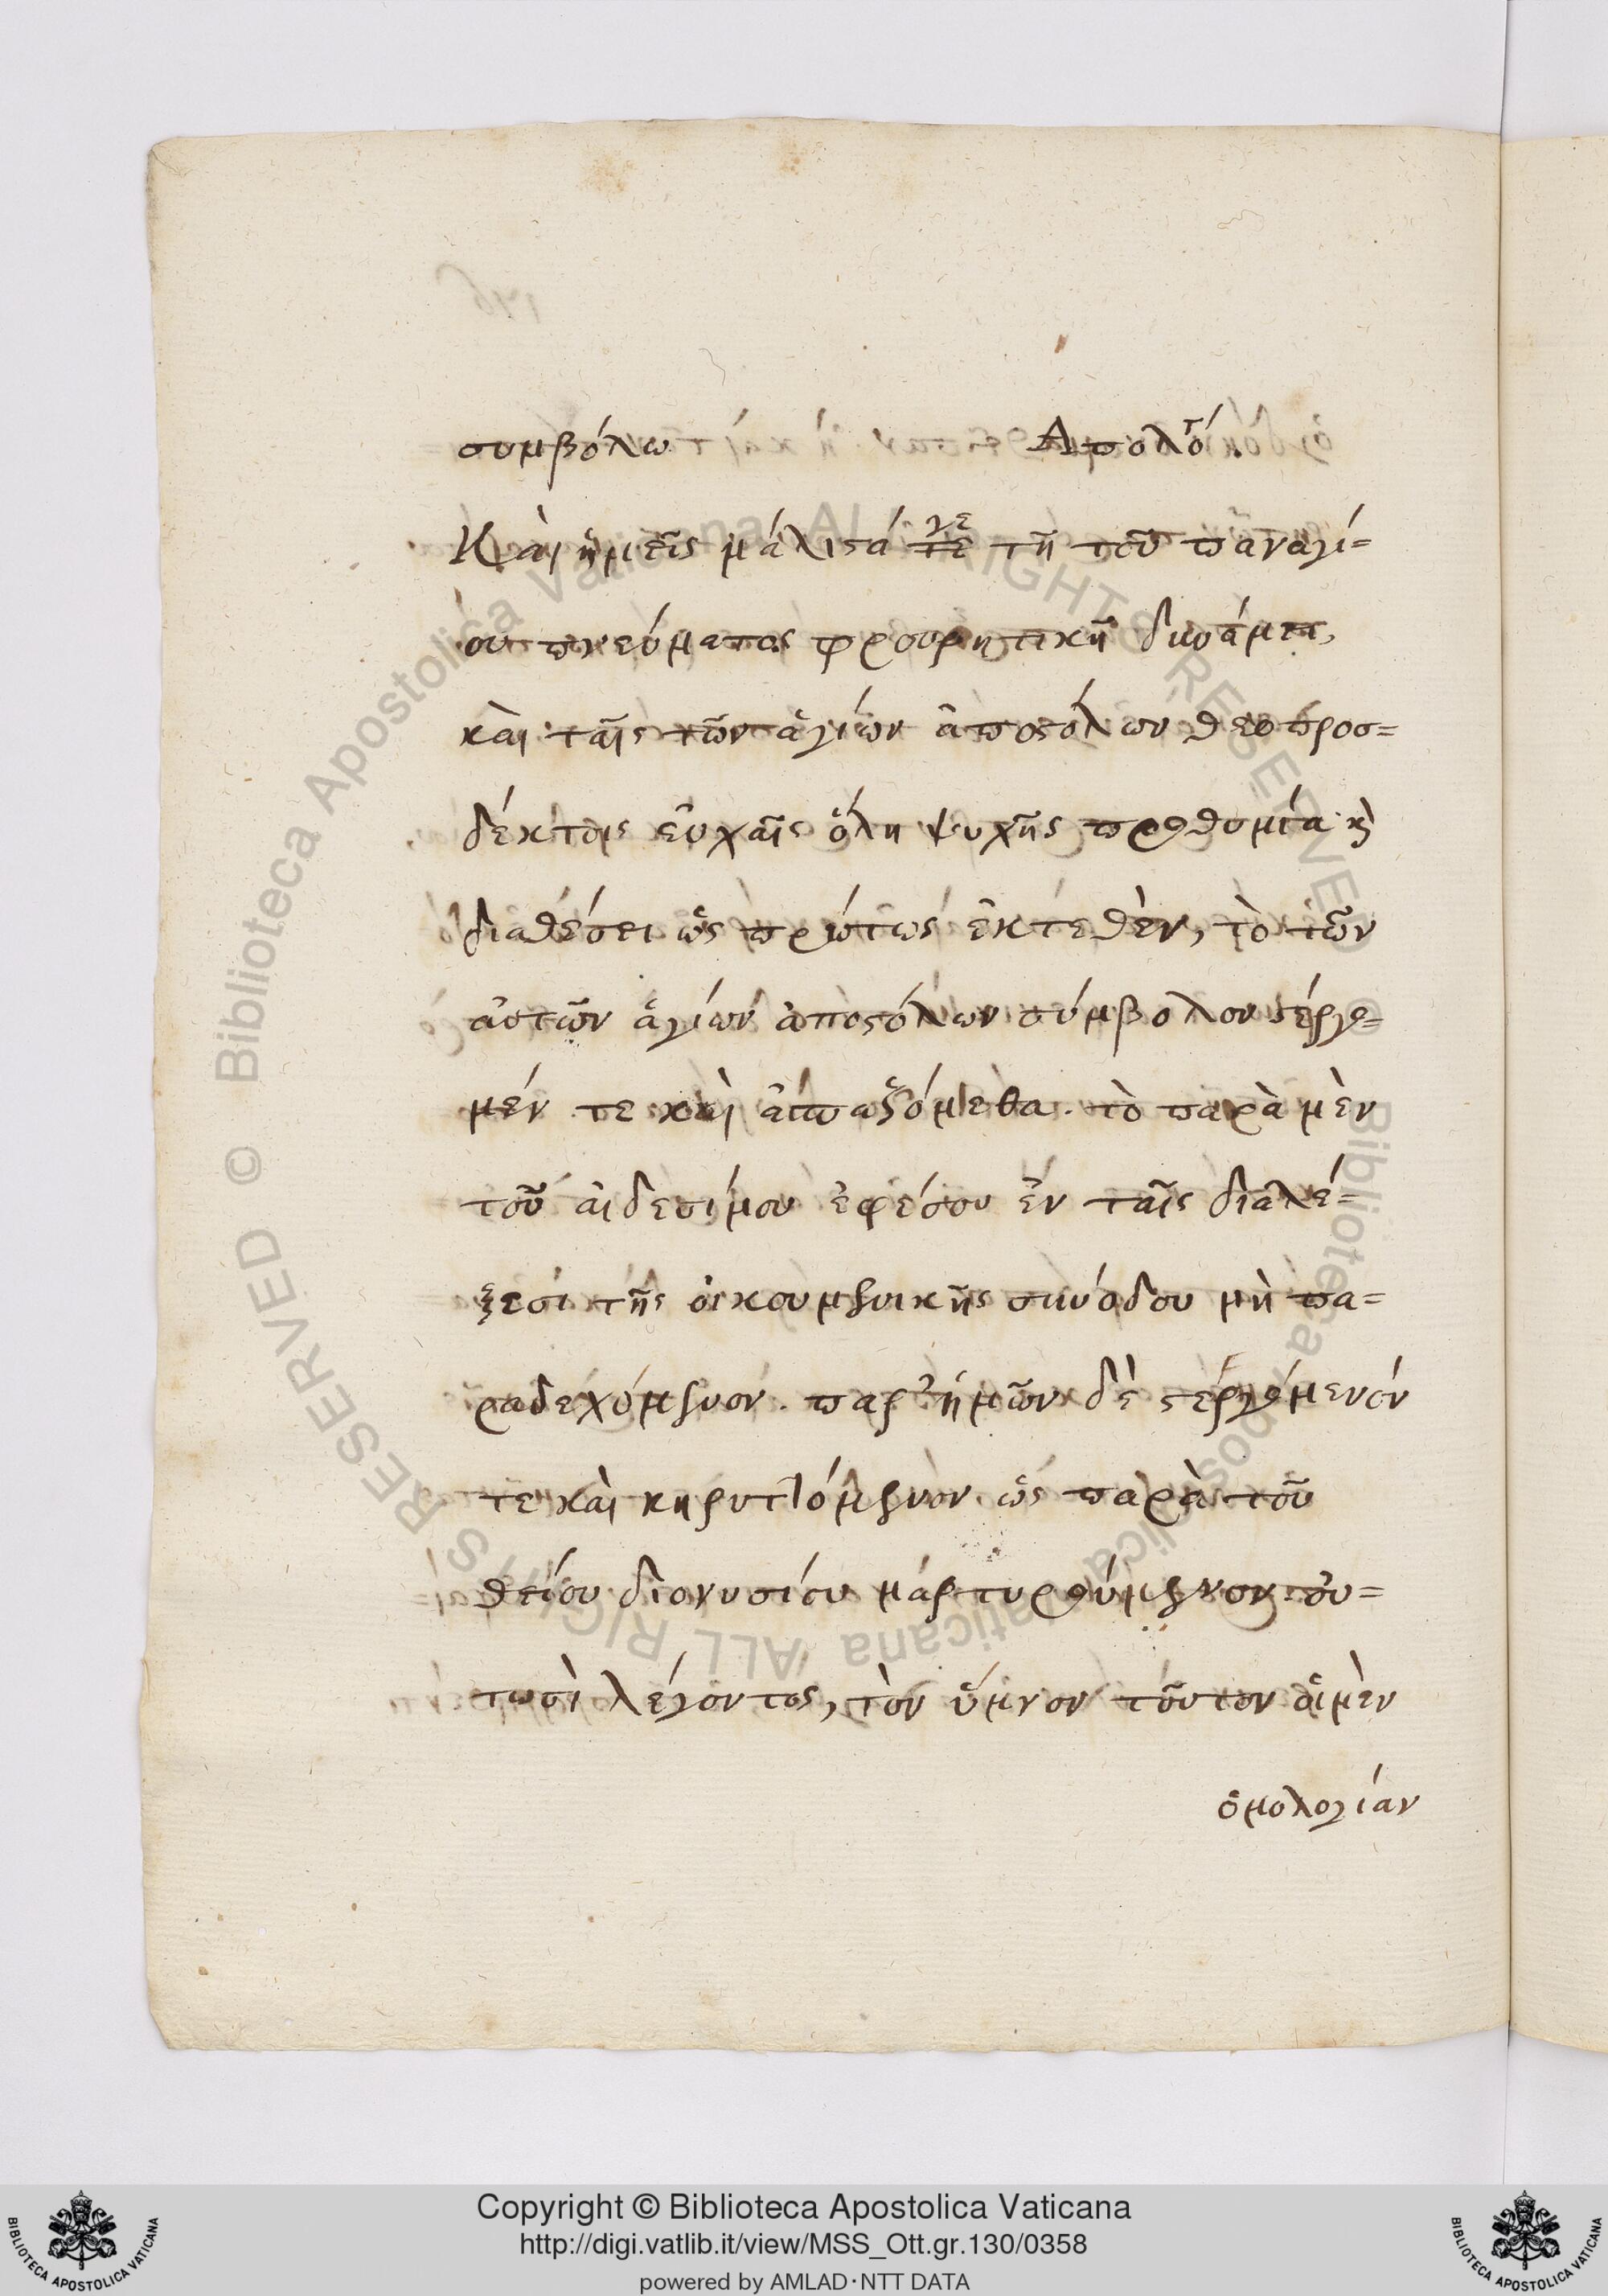 συμβόλω Απολό^τ.
Καὶ ἡμεῖς μάλιστά γε τῇ τοῦ παναγί=
ου πνεύματος φρουρητικῇ δυνάμει,
καὶ ταῖς τῶν ἁγίων ἀποστόλων θεοπροσ=
δέκτοις εὐχαῖς ὅλη ψυχῆς προθυμία κ̀
διαθέσει ὡς πρώτως ἐκτεθὲν, τὸ τῶν
αὐτῶν ἁγίων ἀποστόλων σύμβολον στέργο=
μέν τε καὶ ἀσπαζόμεθα. τὸ παρὰ μὲν
τοῦ αἰδεσίμου ἐφέσου ἐν ταῖς διαλέ=
ξεσι τῆς οἰκουμενικῆς συνόδου μὴ πα=
ραδεχόμενον. παρ' ἡμῶν δὲ στεργόμενόν
τε καὶ κηρυττόμενον ὡς παρὰ τοῦ
θείου διονυσίου μαρτυρούμενον οὑ=
τωσὶ λέγοντος, τὸν ὕμνον τοῦτον οἱ μὲν
ὁμολογίαν
Copyright © Biblioteca Apostolica Vaticana
http://digi.vatlib.it/view/MSS_Ott.gr.130/0358
powered by AMLAD·NTT DATA
BIBLIOTECA APOSTOLICA VATICANA
BIBLIOTECA APOSTOLICA VATICANA
© Biblioteca Apostolica Vaticana ALL RIGHTS RESERVED
© Biblioteca Apostolica Vaticana ALL RIGHTS RESERVED